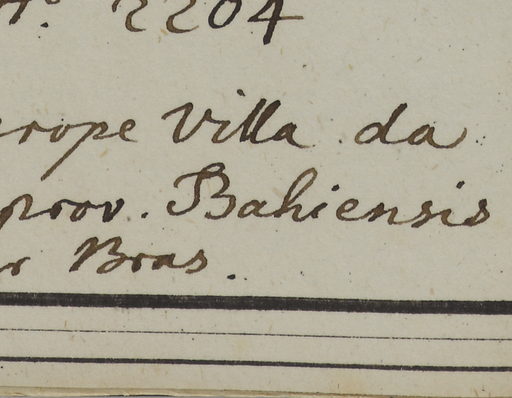 No. 2204
prope Villa da
prov. Bahiensis
Bras.